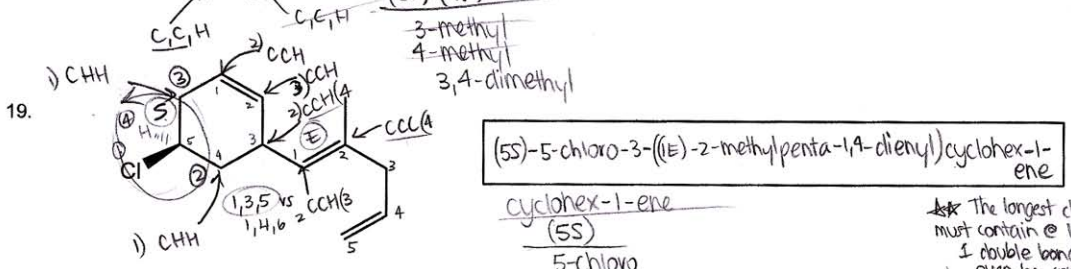 C,C,H
C,C,H
3-methyl
4-methyl
3,4-dimethyl
19.
1) CHH
2) CCH
3) CCH
2) CCH(4
CCC(4
③
1
2
④
S
H
5
3
E
1
2
①
Cl
②
4
3
1,3,5 vs
1,4,6
2 CCH(3
4
5
1) CHH
(5S)-5-chloro-3-((1E)-2-methylpenta-1,4-dienyl)cyclohex-1-
ene
cyclohex-1-ene
(5S)
5-chloro
The longest
must contain @
1 double bond